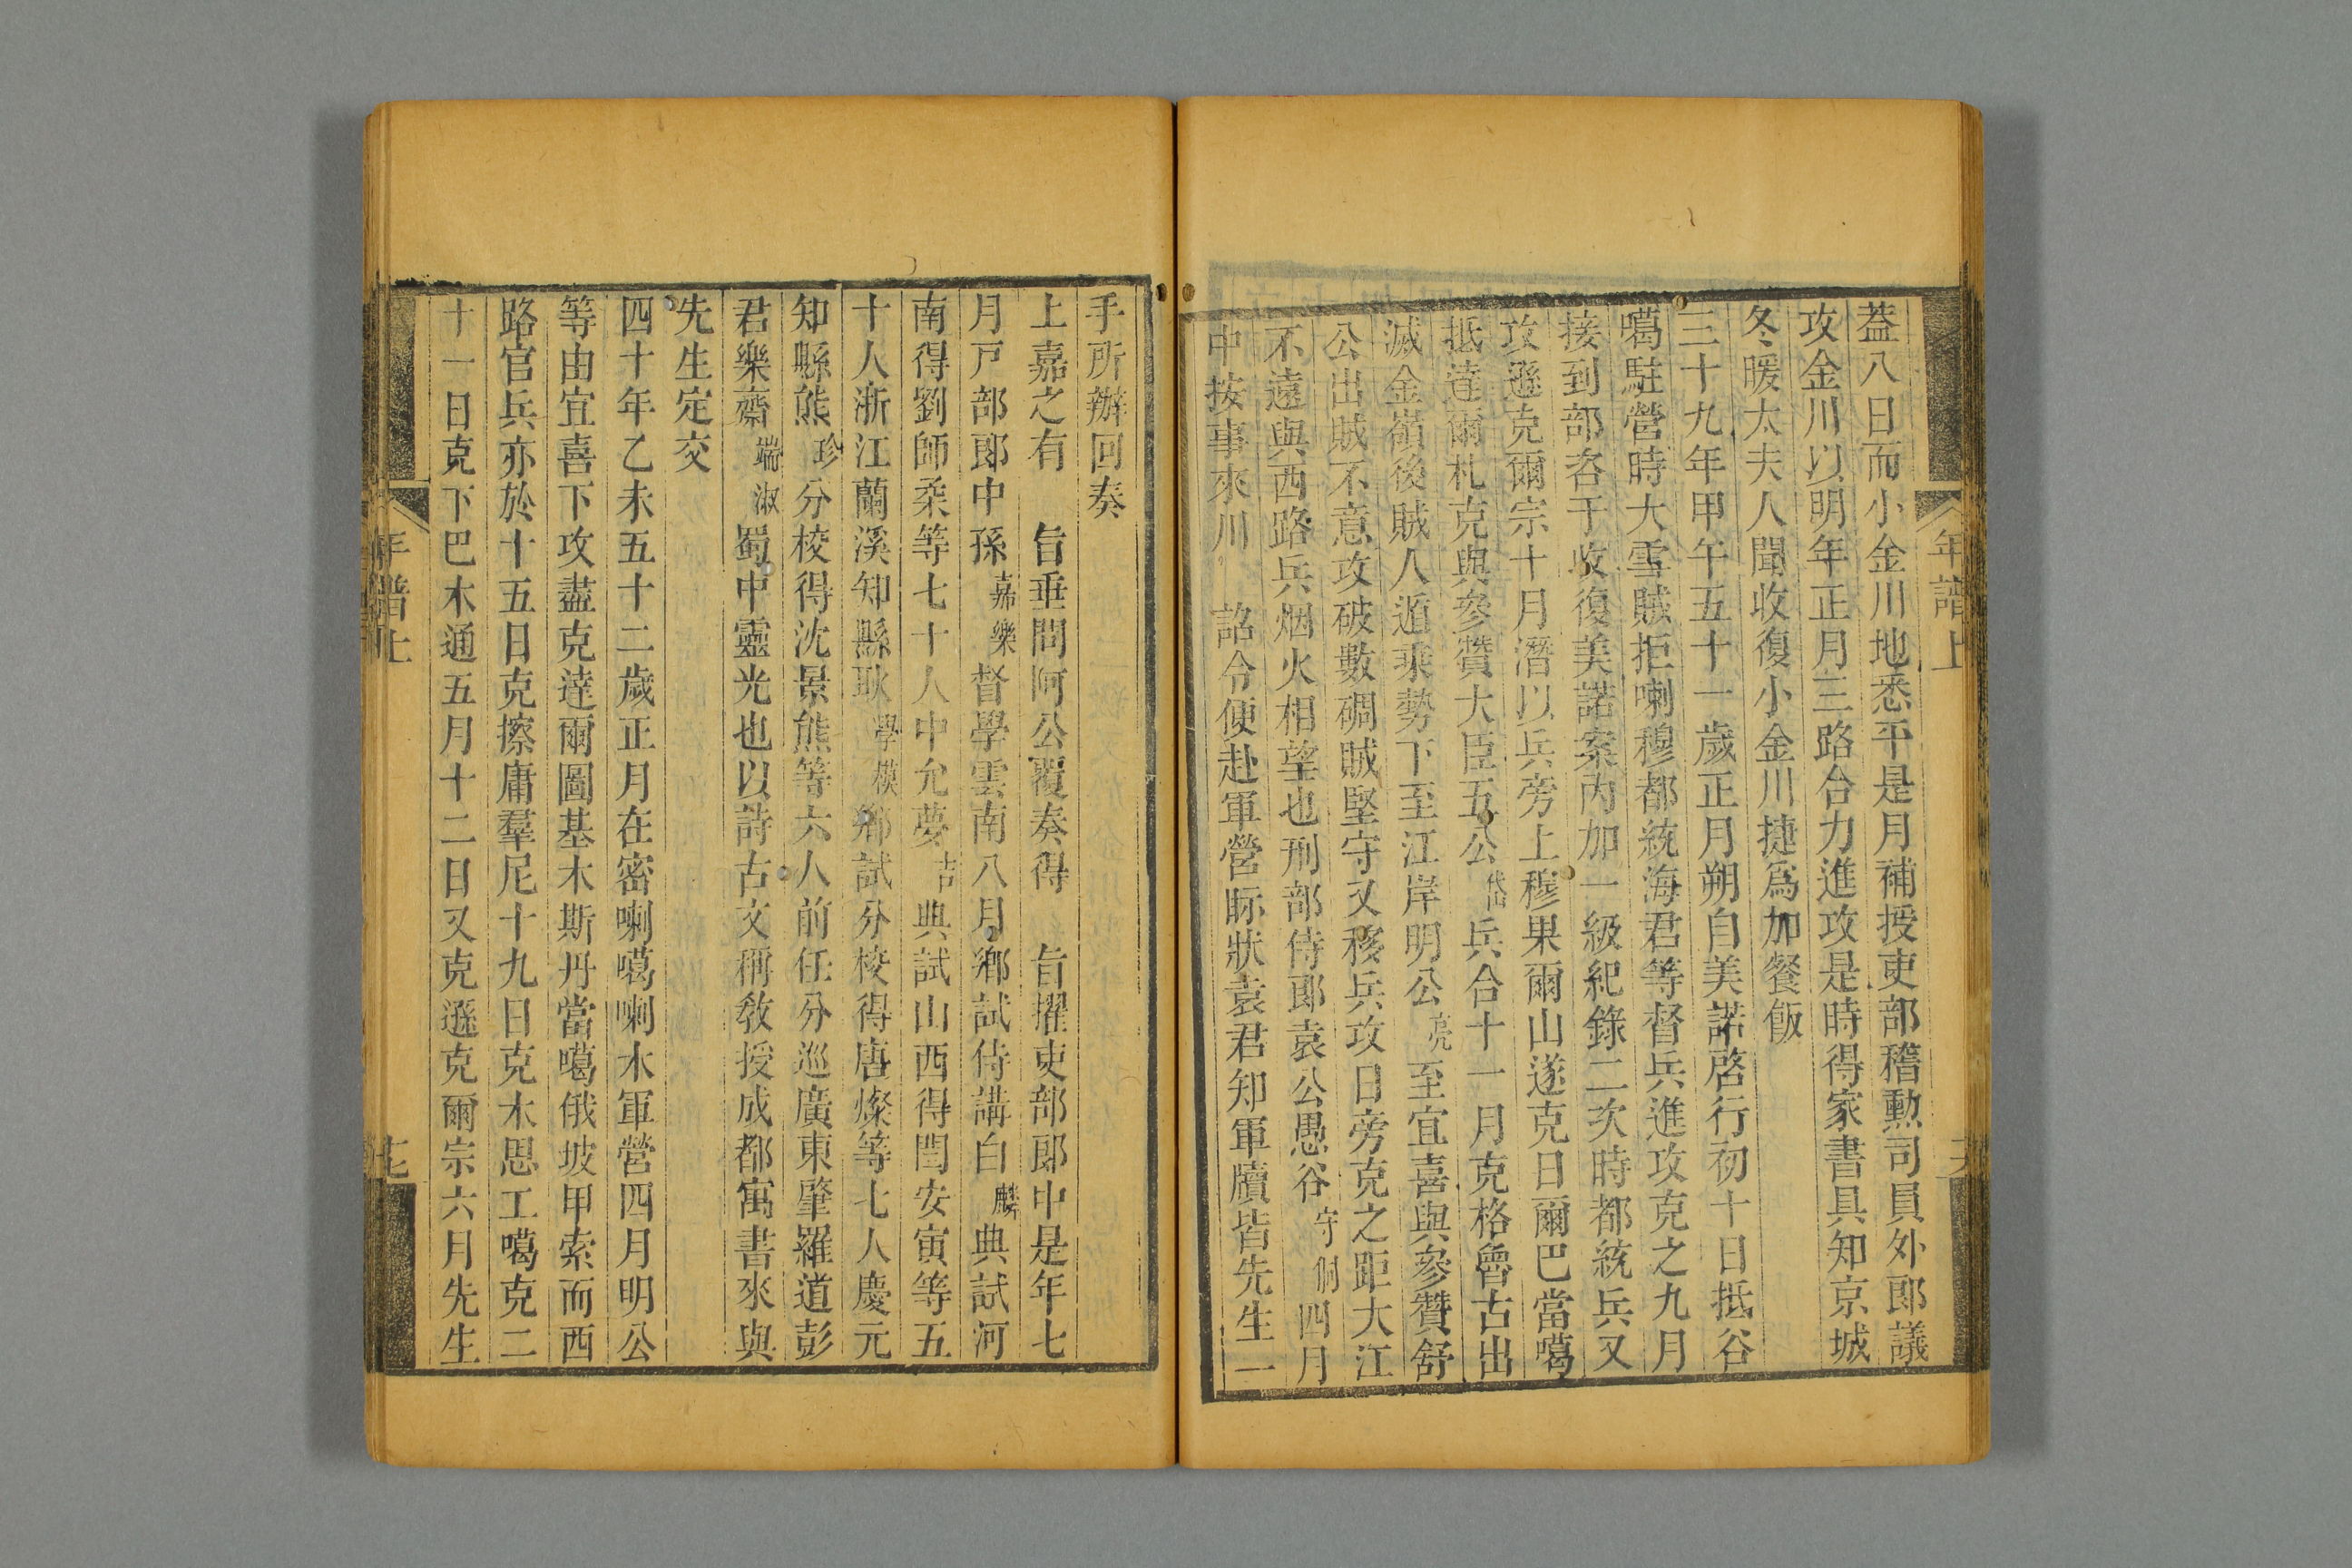 年譜上
葢八日而小金川地悉平是月補授吏部稽勳司員外郞議
攻金川以明年正月三路合力進攻是時得家書具知京城
冬暖太夫人聞收復小金川捷爲加餐飯
三十九年甲午五十一歲正月朔自美諾啓行初十日抵谷
噶駐營時大雪賊拒喇穆都統海君等督兵進攻克之九月
接到部咨于收復美諾案內加一級紀錄二次時都統兵又
攻遜克爾宗十月潛以兵旁上穆果爾山遂克日爾巴當噶
抵達爾札克與參贊大臣五公岱兵合十一月克格魯古出
滅金嶺後賊人遁乘勢下至江岸明公亮至宜喜與參贊舒
公出賊不意攻破數碉賊堅守又移兵攻日旁克之距大江
不遠與西路兵烟火相望也刑部侍郞袁公愚谷守侗四月
中按事來川 詔令便赴軍營眎狀袁君知軍牘皆先生一
手所辦回奏
上嘉之有 旨垂問阿公覆奏得 旨擢吏部郞中是年七
月戸部郞中孫嘉樂督學雲南八月鄉試侍講白麟典試河
南得劉師柔等七十人中允夢吉典試山西得閆安寅等五
十人浙江蘭溪知縣耿學模鄉試分校得唐燦等七人慶元
知縣熊珍分校得沈景熊等六人前任分巡廣東肇羅道彭
君樂齋端淑蜀中靈光也以詩古文稱敎授成都寓書來與
先生定交
四十年乙未五十二歲正月在密喇噶喇木軍營四月明公
等由宜喜下攻盡克達爾圖基木斯丹當噶俄坡甲索而西
路官兵亦於十五日克擦庸羣尼十九日克木思工噶克二
十一日克下巴木通五月十二日又克遜克爾宗六月先生
年譜上
七